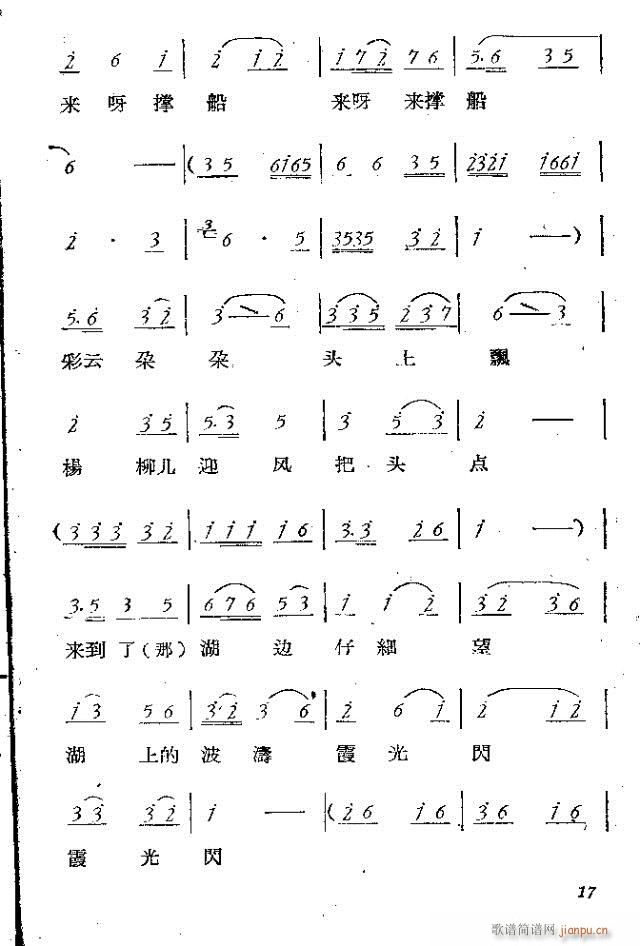 2 6 1 | 2 1 2 | 1 7 2 7 6 | 5. 6 3 5 |
来呀撑船 来呀来撑船
6 — | ( 3 5 6165 | 6 6 3 5 | 2321 1661 |
2 · 3 | 3 6 · 5 | 3535 3 2 | 1 — )
5. 6 3 2 | 3 6 | 3 3 5 2 3 7 | 6 3 |
彩云朵朵头上飄
2 3 5 | 5. 3 5 | 3 5 3 | 2 — |
楊柳儿迎风把头点
( 3 3 3 3 2 | 1 1 1 1 6 | 3. 3 2 6 | 1 — )
3. 5 3 5 | 6 7 6 5 3 | 1 1 2 | 3 2 3 6 |
来到了(那)湖边仔細望
1 3 5 6 | 3 2 3 6 | 2 6 1 | 2 1 2 |
湖上的波濤霞光閃
3 3 3 2 | 1 — | ( 2 6 1 6 | 3 6 1 6 |
霞光閃
17
歌谱简谱网 jianpu.cn